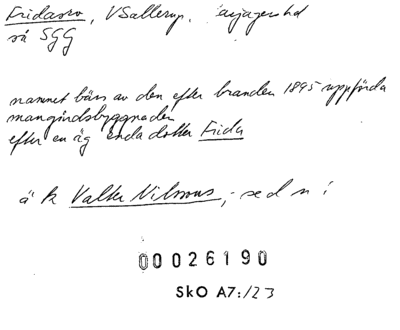 Fridasro, V Sallerup, avjagershd
så SGG
namnet bärs av den efter branden 1895 uppförda
mangårdsbyggnaden
efter en äg enda dotter Frida
ä k Valter Nilssons, - se d n!
00026190
SkO A7:/23